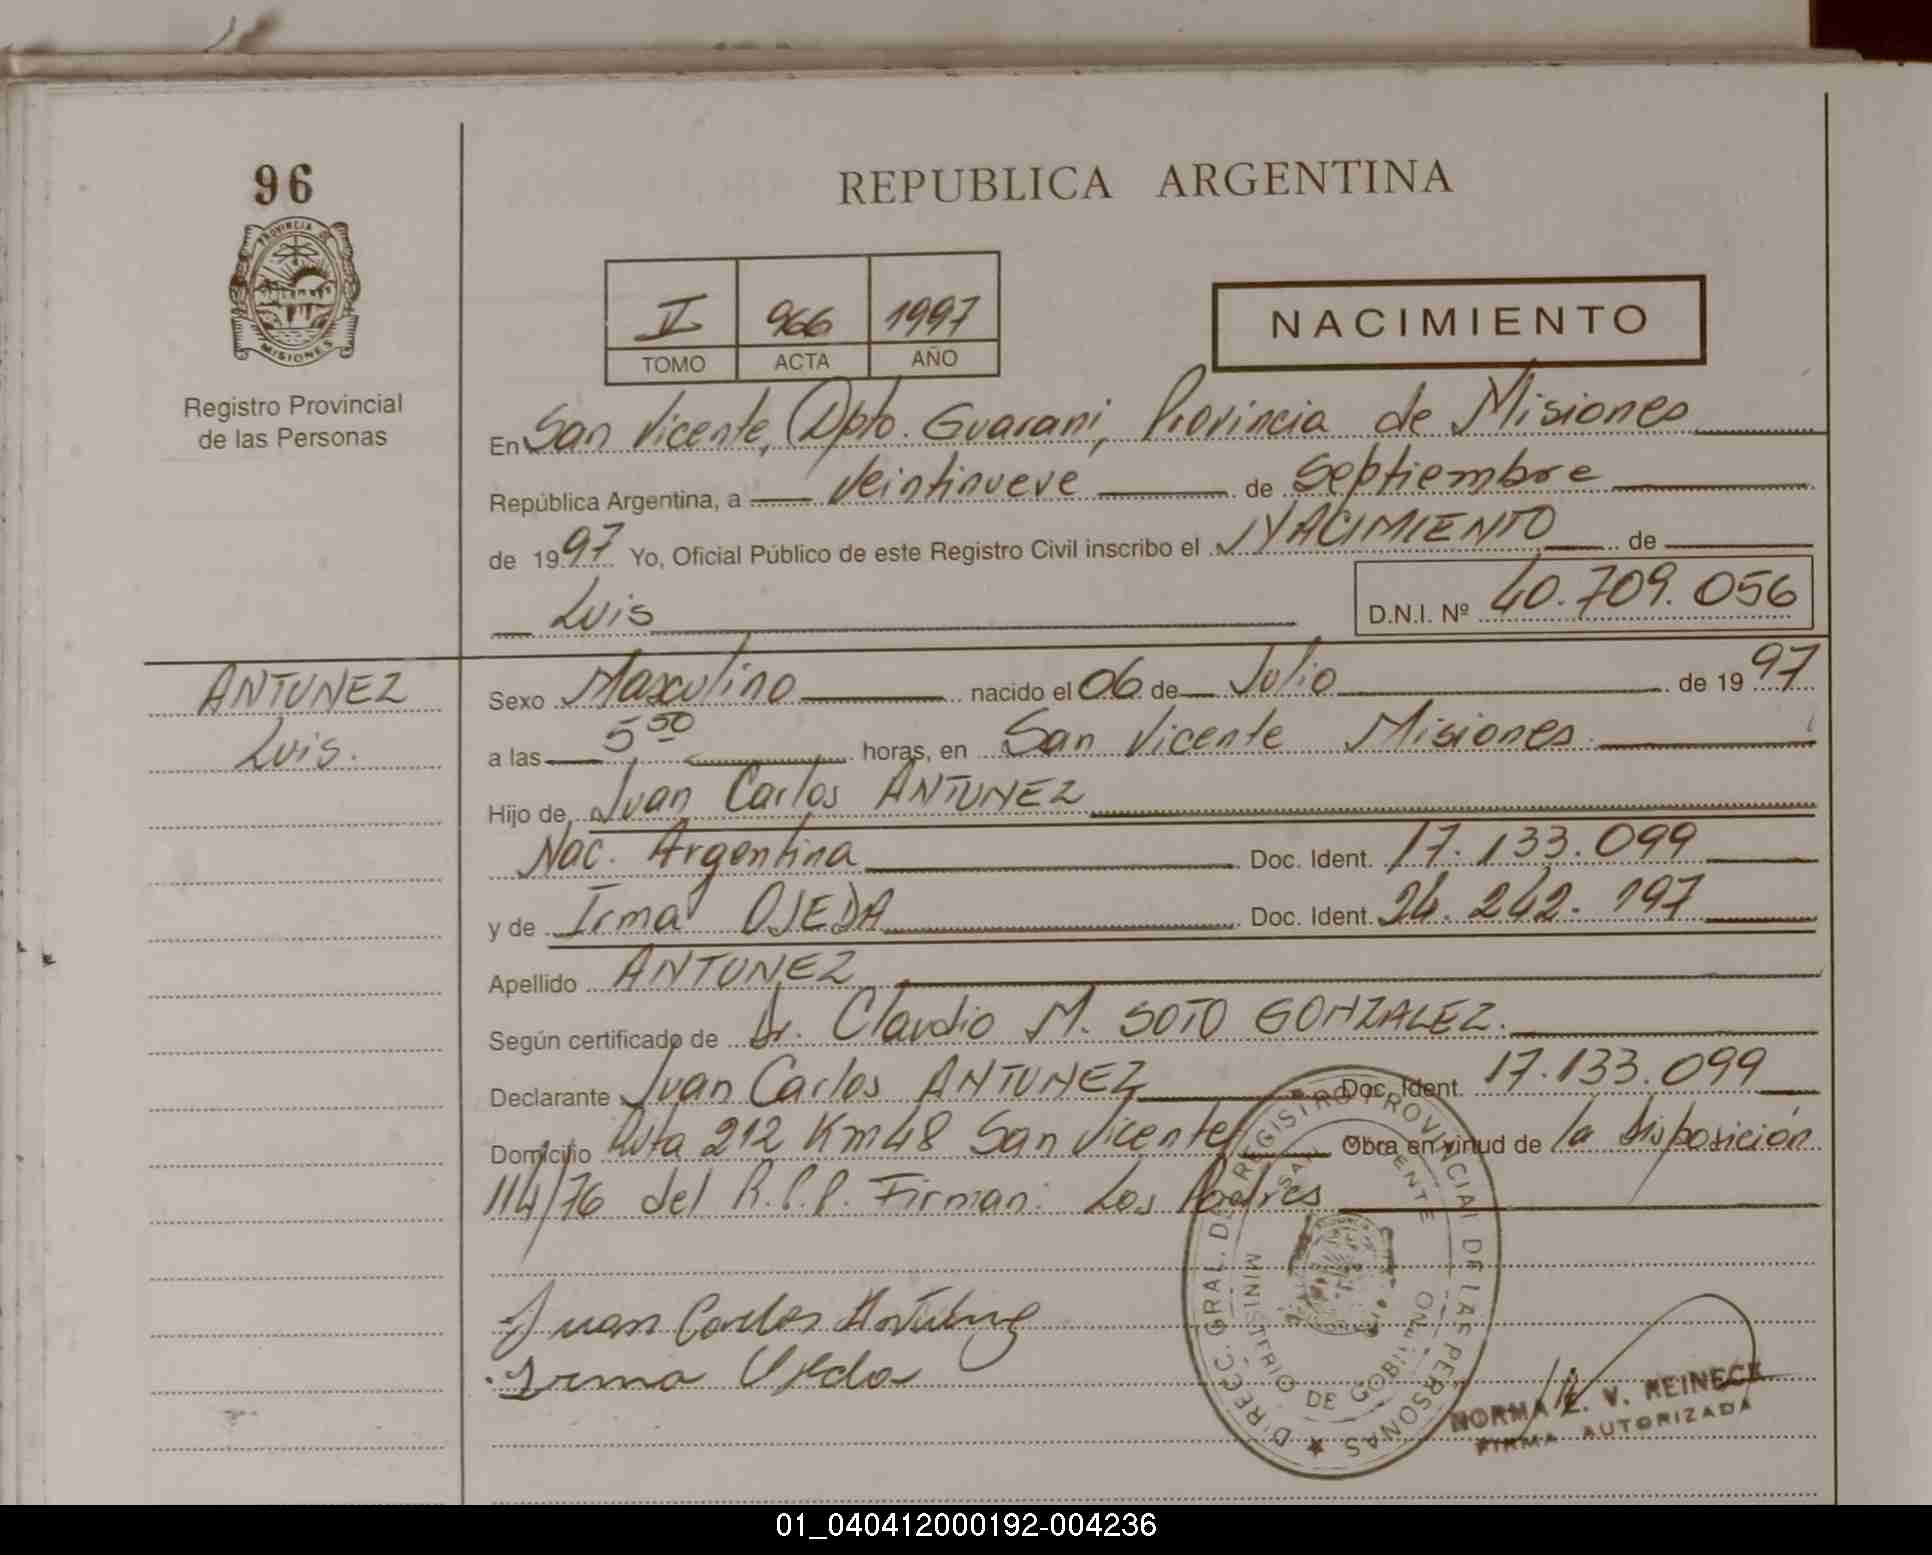 96
PROVINCIA DE
MISIONES
Registro Provincial
de las Personas
REPUBLICA ARGENTINA
V 966 1997
TOMO ACTA AÑO
NACIMIENTO
En San Vicente, Dpto. Guarani, Provincia de Misiones
República Argentina, a veintinueve de Septiembre
de 1997 Yo, Oficial Público de este Registro Civil inscribo el NACIMIENTO de
Luis D.N.I. Nº 40.709.056
ANTUNEZ
Luis.
Sexo Masculino nacido el 06 de Julio de 1997
a las 5 50 horas, en San Vicente Misiones
Hijo de Juan Carlos ANTUNEZ
Nac. Argentina Doc. Ident. 17.133.099
y de Irma OJEDA Doc. Ident. 24.242.197
Apellido ANTUNEZ
Según certificado de Dr. Claudio M. SOTO GONZALEZ.
Declarante Juan Carlos ANTUNEZ Doc. Ident. 17.133.099
Domicilio Ruta 212 Km 48 San Vicente Obra en virtud de la disposición
114/76 del R.P.P. Firman: Los Padres
Juan Carlos Antunez
Irma Ojeda
DIRECC. GRAL. DEL REGISTRO PROVINCIAL DE LAS PERSONAS
SAN VICENTE
MINISTERIO DE GOBIERNO
NORMA E. V. REINECK
FIRMA AUTORIZADA
01_040412000192-004236